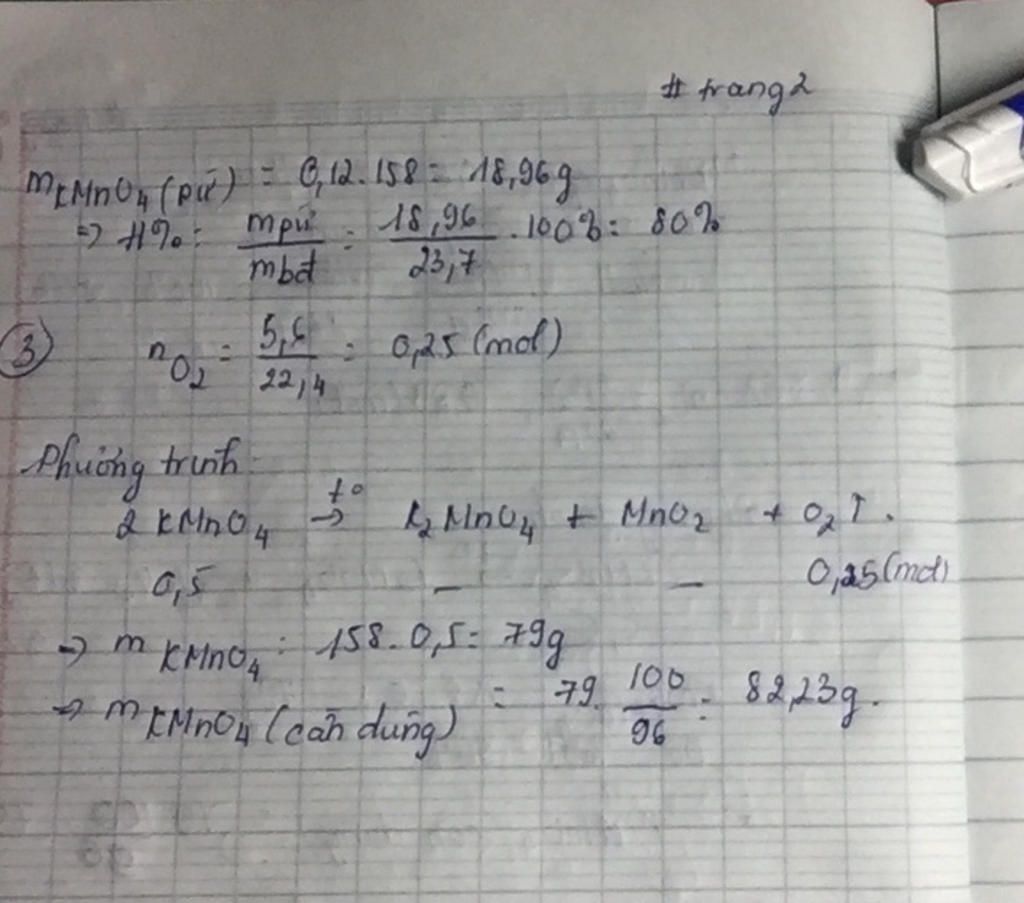 # trang 2
mKMnO4 (pứ) = 0,12.158 = 18,96g
=> H% = mpứ/mbđ = 18,96/23,7 .100% = 80%
③ nO2 = 5,6/22,4 = 0,25 (mol)
Phương trình:
2 KMnO4 t°→ K2MnO4 + MnO2 + O2↑.
0,5 – – 0,25 (mol)
=> m KMnO4 = 158.0,5 = 79g
=> m KMnO4 (cần dùng) = 79. 100/96 = 82,23g.